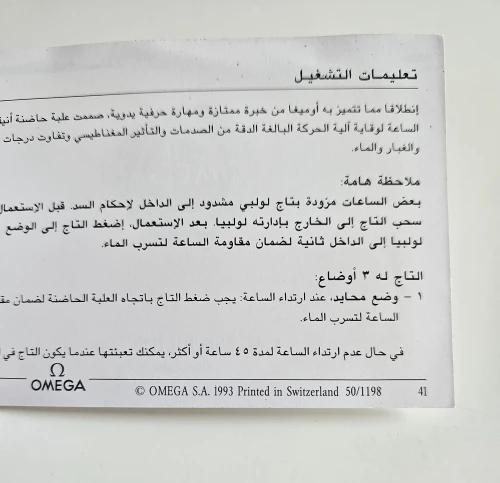 تعليمات التشغيل
إنطلاقا مما تتميز به أوميغا من خبرة ممتازة ومهارة حرفية يدوية، صممت علبة حاضنة
الساعة لوقاية آلية الحركة البالغة الدقة من الصدمات والتأثير المغناطيسي وتفاوت درجات
والغبار والماء.
ملاحظة هامة:
بعض الساعات مزودة بتاج لولبي مشدود إلى الداخل لإحكام السد. قبل الاستعمال
سحب التاج إلى الخارج بإدارته لولبيا. بعد الإستعمال، إضغط التاج إلى الوضع
لولبيا إلى الداخل ثانية لضمان مقاومة الساعة لتسرب الماء.
التاج له ٣ أوضاع:
١ – وضع محايد، عند ارتداء الساعة: يجب ضغط التاج باتجاه العلبة الحاضنة لضمان
الساعة لتسرب الماء.
في حال عدم ارتداء الساعة لمدة ٤٥ ساعة أو أكثر، يمكنك تعبئتها عندما يكون التاج في
Ω
OMEGA
© OMEGA S.A. 1993 Printed in Switzerland 50/1198 41